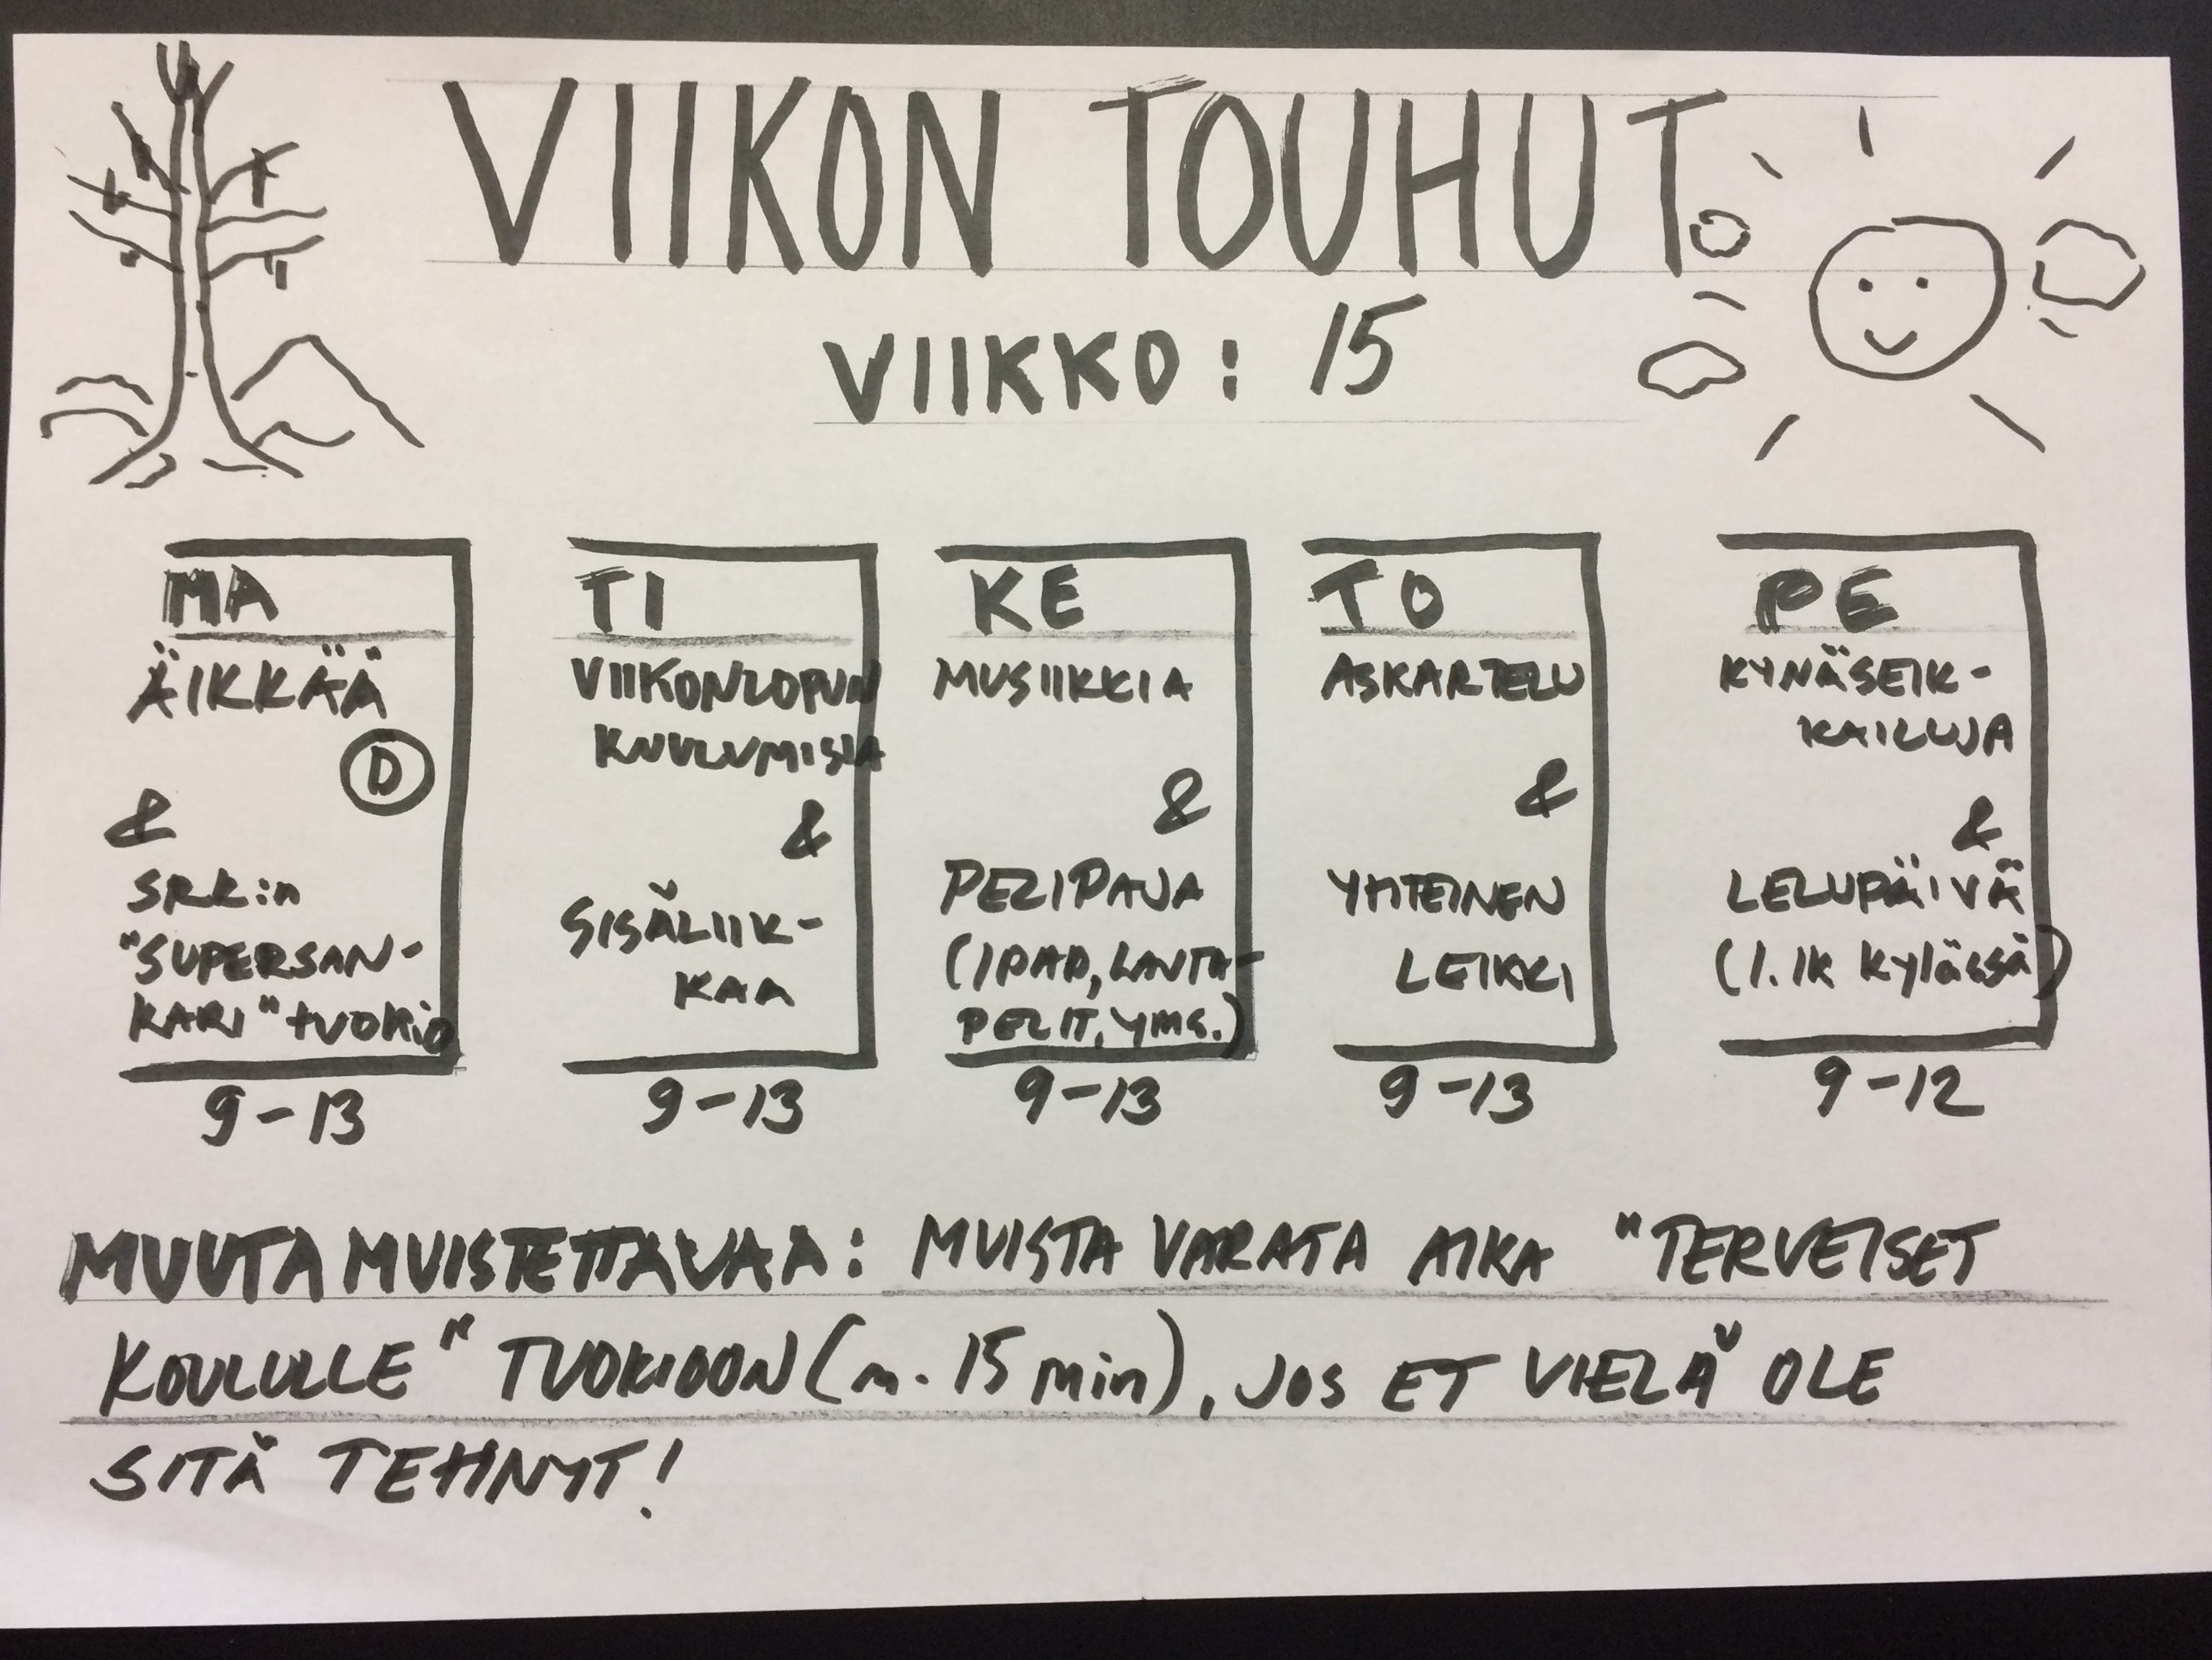 VIIKON TOUHUT
VIIKKO: 15
MA
ÄIKKÄÄ
D
&
SRK:n
"SUPERSAN-
KARI" tuokio
9-13
TI
VIIKONLOPUN
KUULUMISIA
&
SISÄLIIK-
KAA
9-13
KE
MUSIIKKIA
&
PELIPAJA
(IPAD, LAUTA-
PELIT, YMS.)
9-13
TO
ASKARTELU
&
YHTEINEN
LEIKKI
9-13
PE
KYNÄSEIK-
KAILUJA
&
LELUPÄIVÄ
(1.lk kylässä)
9-12
MUUTA MUISTETTAVAA: MUISTA VARATA AIKA "TERVEISET
KOULULLE" TUOKIOON (n. 15 min), JOS ET VIELÄ OLE
SITÄ TEHNYT!